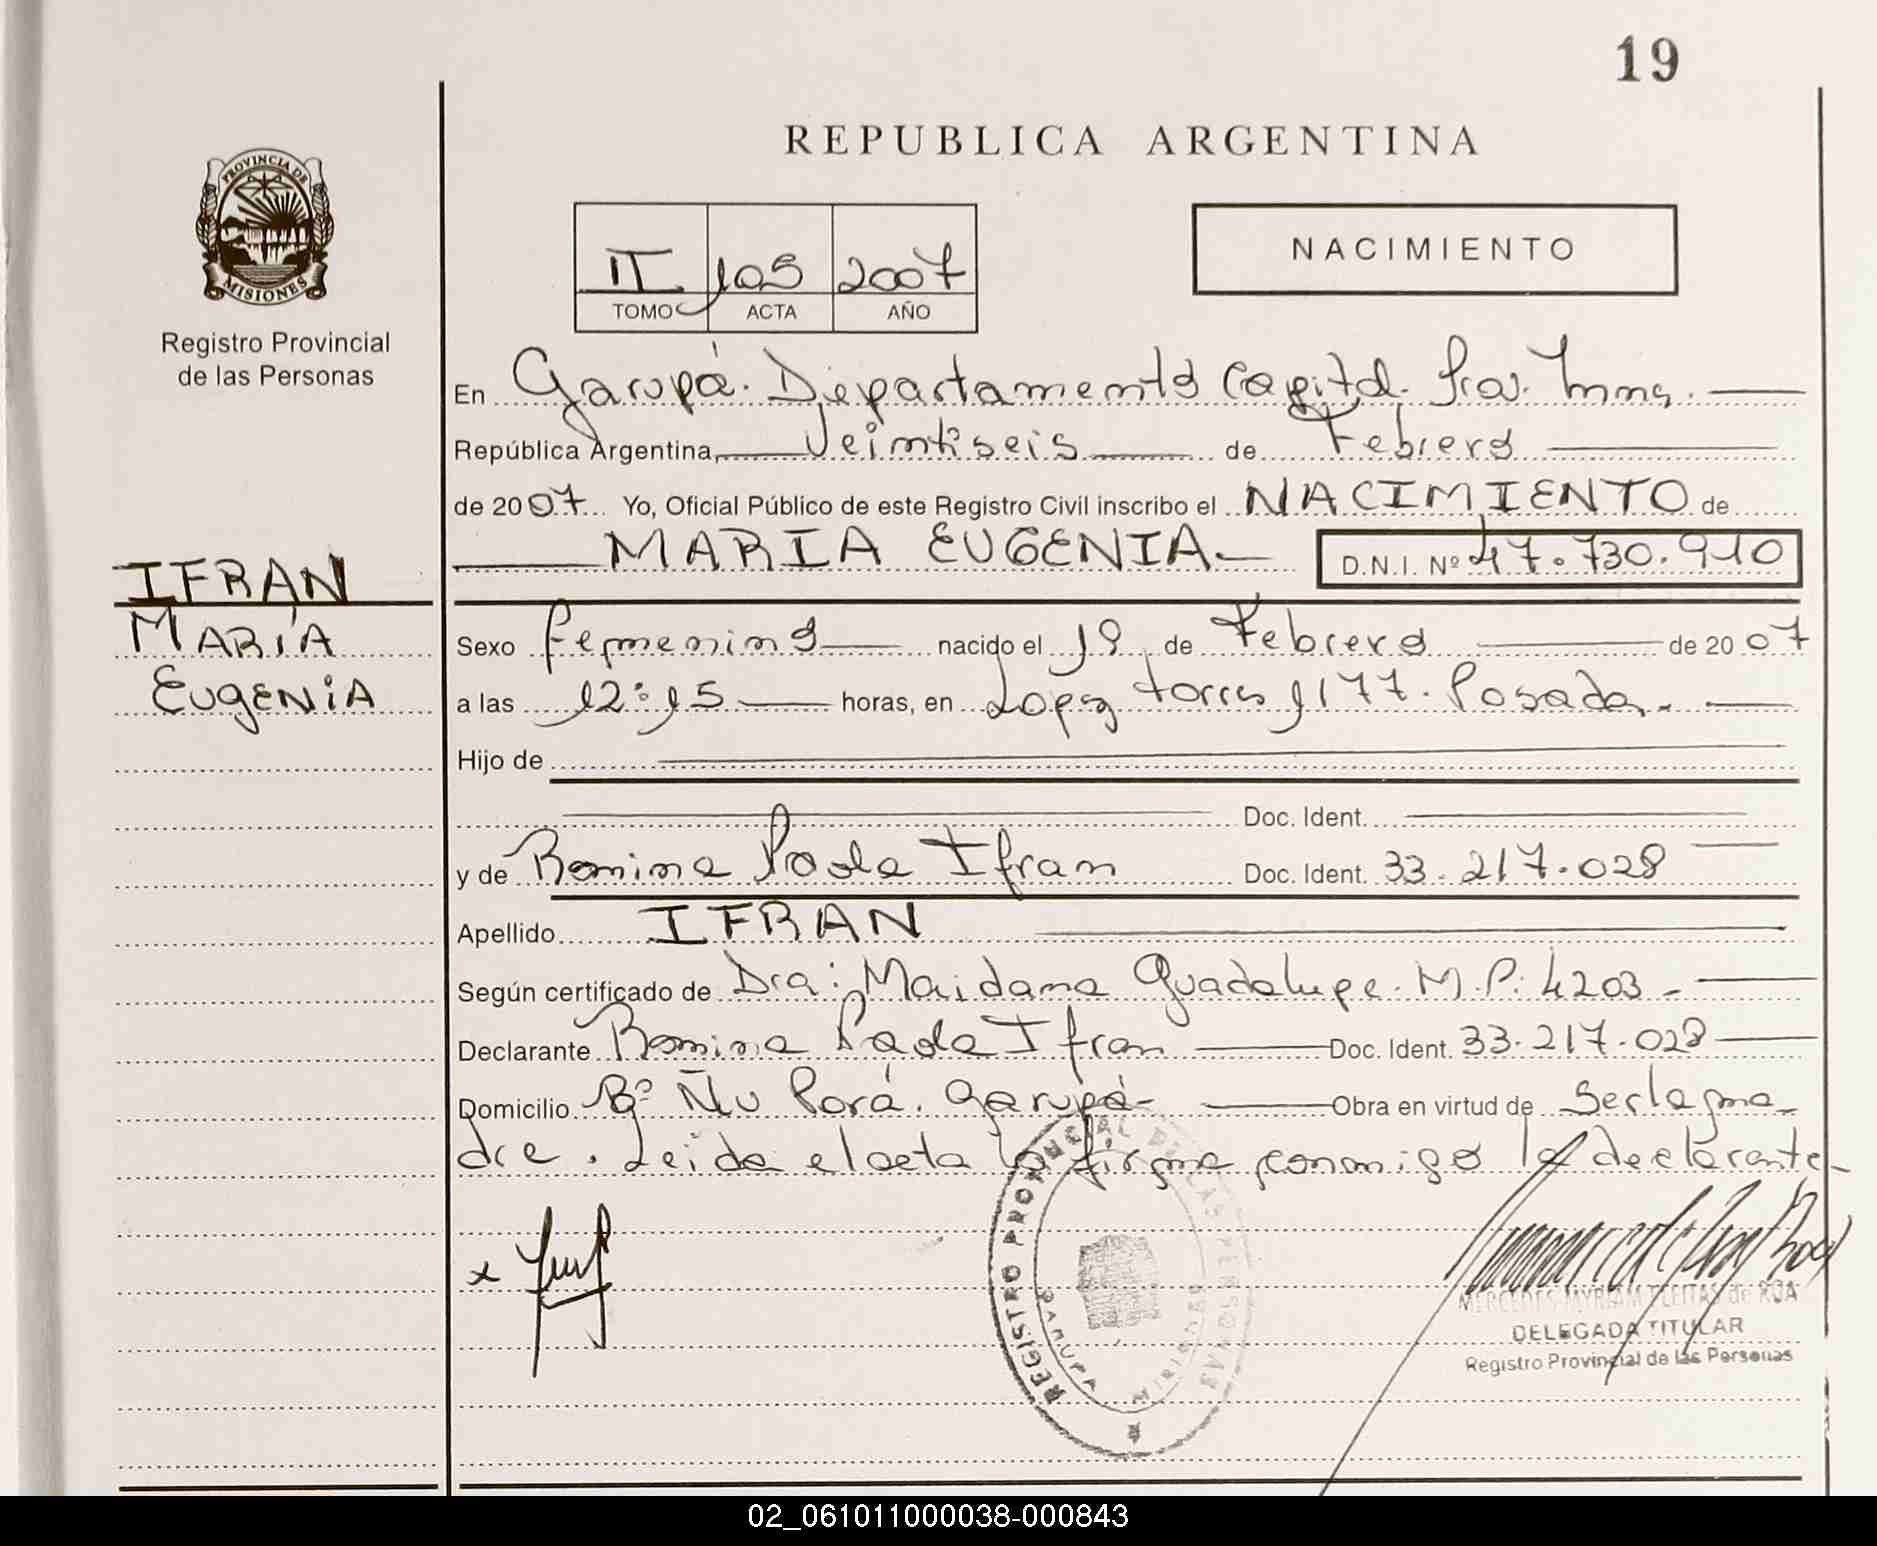 19
REPUBLICA ARGENTINA
PROVINCIA DE
MISIONES
Registro Provincial
de las Personas
II 105 2007
TOMO ACTA AÑO
NACIMIENTO
En Garupá. Departamento Capital. Pcia. Mnes.
República Argentina, Veintiseis de Febrero
de 2007. Yo, Oficial Público de este Registro Civil inscribo el NACIMIENTO de
MARIA EUGENIA D.N.I. Nº 47.730.910
IFRAN
MARÍA
EUGENIA
Sexo femenino nacido el 19 de Febrero de 2007
a las 12:15 horas, en Lopez Torres 1177. Posadas.
Hijo de
Doc. Ident.
y de Romina Paola Ifran Doc. Ident. 33.217.028
Apellido IFRAN
Según certificado de Dra: Maidana Guadalupe. M.P: 4203.
Declarante Romina Paola Ifran Doc. Ident. 33.217.028
Domicilio Bº Ñu Porá. Garupá- Obra en virtud de Ser la ma-
dre. Leida el acta la firma conmigo la declarante-
x
REGISTRO PROVINCIAL DE LAS PERSONAS
GARUPA MISIONES
MERCEDES MYRIAM FLEITAS de ROA
DELEGADA TITULAR
Registro Provincial de las Personas
02_061011000038-000843